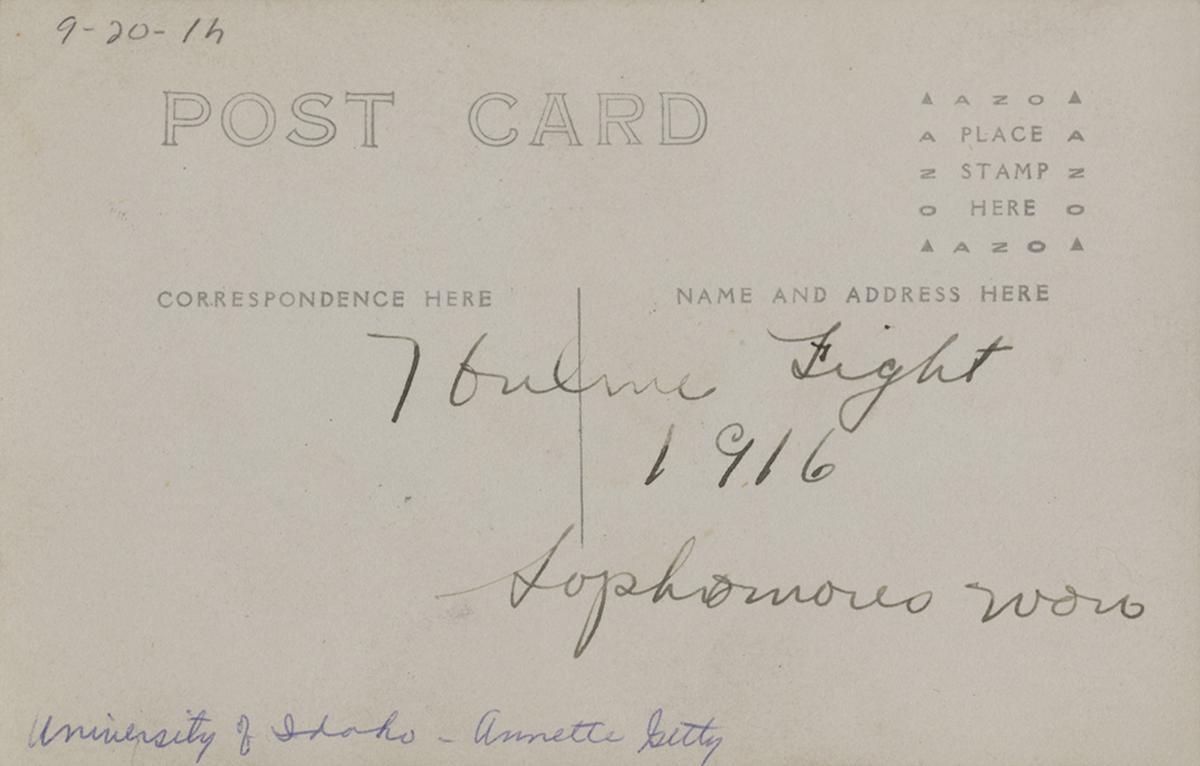 9-20-1h
POST CARD
▲ A Z O ▲
A PLACE A
Z STAMP Z
O HERE O
▲ A Z O ▲
CORRESPONDENCE HERE
NAME AND ADDRESS HERE
Hulme Fight
1916
Sophomores won
University of Idaho - Annette Getty